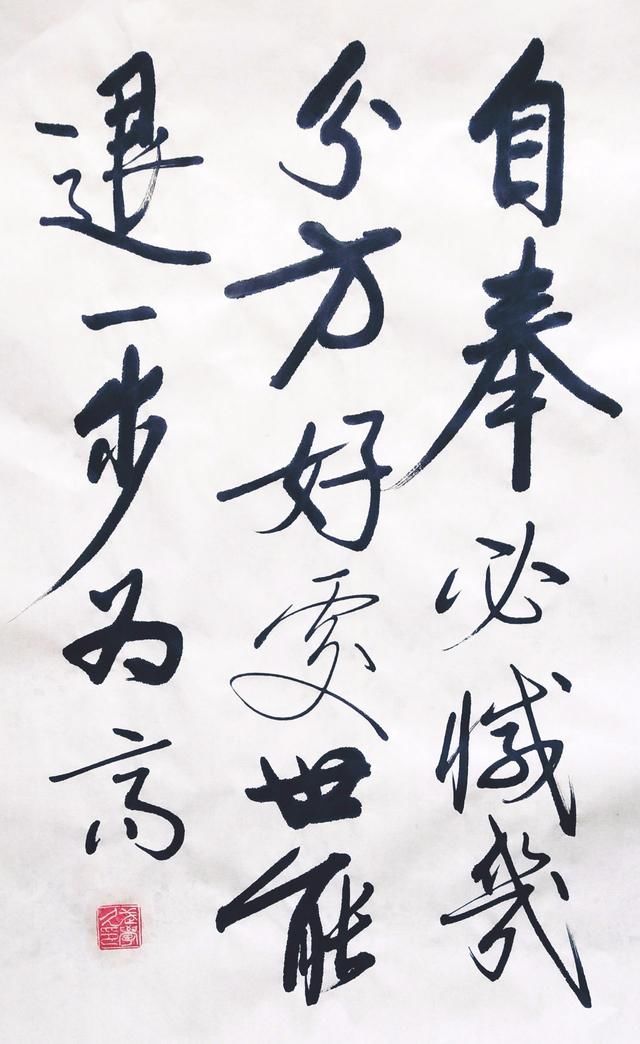 自奉必減幾
分方好處世能
退一步为高